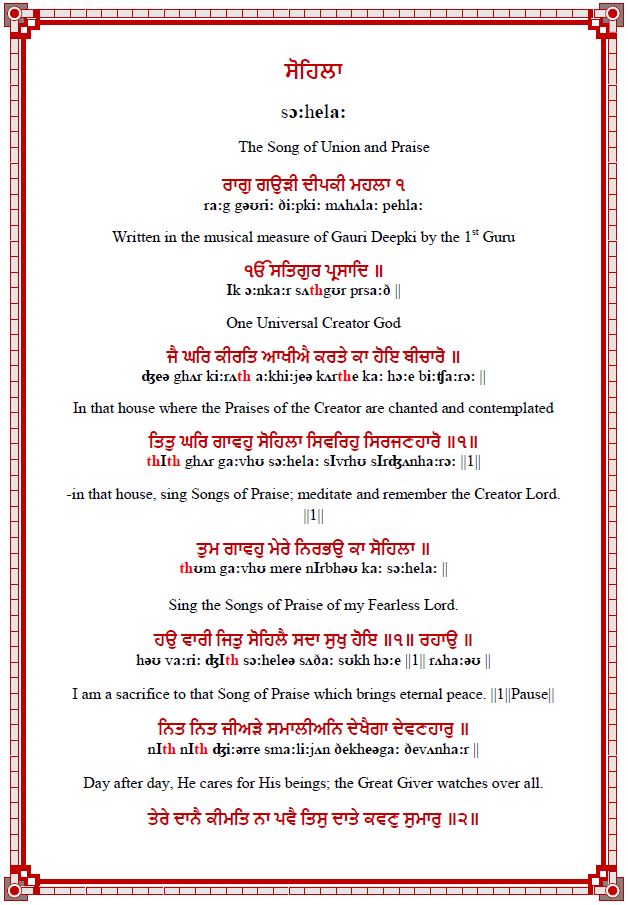 ਸੋਹਿਲਾ
sɔːhelaː
The Song of Union and Praise
ਰਾਗੁ ਗਉੜੀ ਦੀਪਕੀ ਮਹਲਾ ੧
raːg gəʊriː ðiːpkiː mʌhʌlaː pehlaː
Written in the musical measure of Gauri Deepki by the 1st Guru
ੴ ਸਤਿਗੁਰ ਪ੍ਰਸਾਦਿ ॥
Ik ɔːnkaːr sʌthgʊr prsaːð ||
One Universal Creator God
ਜੈ ਘਰਿ ਕੀਰਤਿ ਆਖੀਐ ਕਰਤੇ ਕਾ ਹੋਇ ਬੀਚਾਰੋ ॥
ʤeə ghʌr kiːrʌth aːkhiːjeə kʌrthe kaː hɔːe biːʧaːrɔː ||
In that house where the Praises of the Creator are chanted and contemplated
ਤਿਤੁ ਘਰਿ ਗਾਵਹੁ ਸੋਹਿਲਾ ਸਿਵਰਿਹੁ ਸਿਰਜਣਹਾਰੋ ॥੧॥
thIth ghʌr gaːvhʊ sɔːhelaː sIvrhʊ sIrʤʌnhaːrɔː ||1||
-in that house, sing Songs of Praise; meditate and remember the Creator Lord.
||1||
ਤੁਮ ਗਾਵਹੁ ਮੇਰੇ ਨਿਰਭਉ ਕਾ ਸੋਹਿਲਾ ॥
thʊm gaːvhʊ mere nIrbhəʊ kaː sɔːhelaː ||
Sing the Songs of Praise of my Fearless Lord.
ਹਉ ਵਾਰੀ ਜਿਤੁ ਸੋਹਿਲੈ ਸਦਾ ਸੁਖੁ ਹੋਇ ॥੧॥ ਰਹਾਉ ॥
həʊ vaːriː ʤIth sɔːheleə sʌðaː sʊkh hɔːe ||1|| rʌhaːəʊ ||
I am a sacrifice to that Song of Praise which brings eternal peace. ||1||Pause||
ਨਿਤ ਨਿਤ ਜੀਅੜੇ ਸਮਾਲੀਅਨਿ ਦੇਖੈਗਾ ਦੇਵਣਹਾਰੁ ॥
nIth nIth ʤiːərre smaːliːjʌn ðekheəgaː ðevʌnhaːr ||
Day after day, He cares for His beings; the Great Giver watches over all.
ਤੇਰੇ ਦਾਨੈ ਕੀਮਤਿ ਨਾ ਪਵੈ ਤਿਸੁ ਦਾਤੇ ਕਵਣੁ ਸੁਮਾਰੁ ॥੨॥